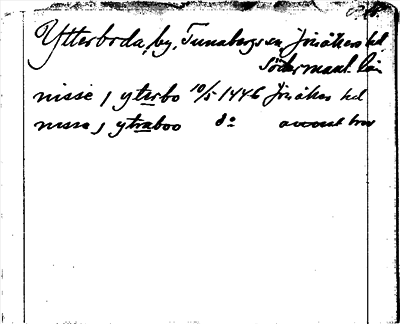 Ytterboda, by, Tunabergs sn, Jönåkers hd,
Södermanl. län
nisse j yterbo 10/5 1446 Jönåker hd
nisse j ytraboo do annat brev